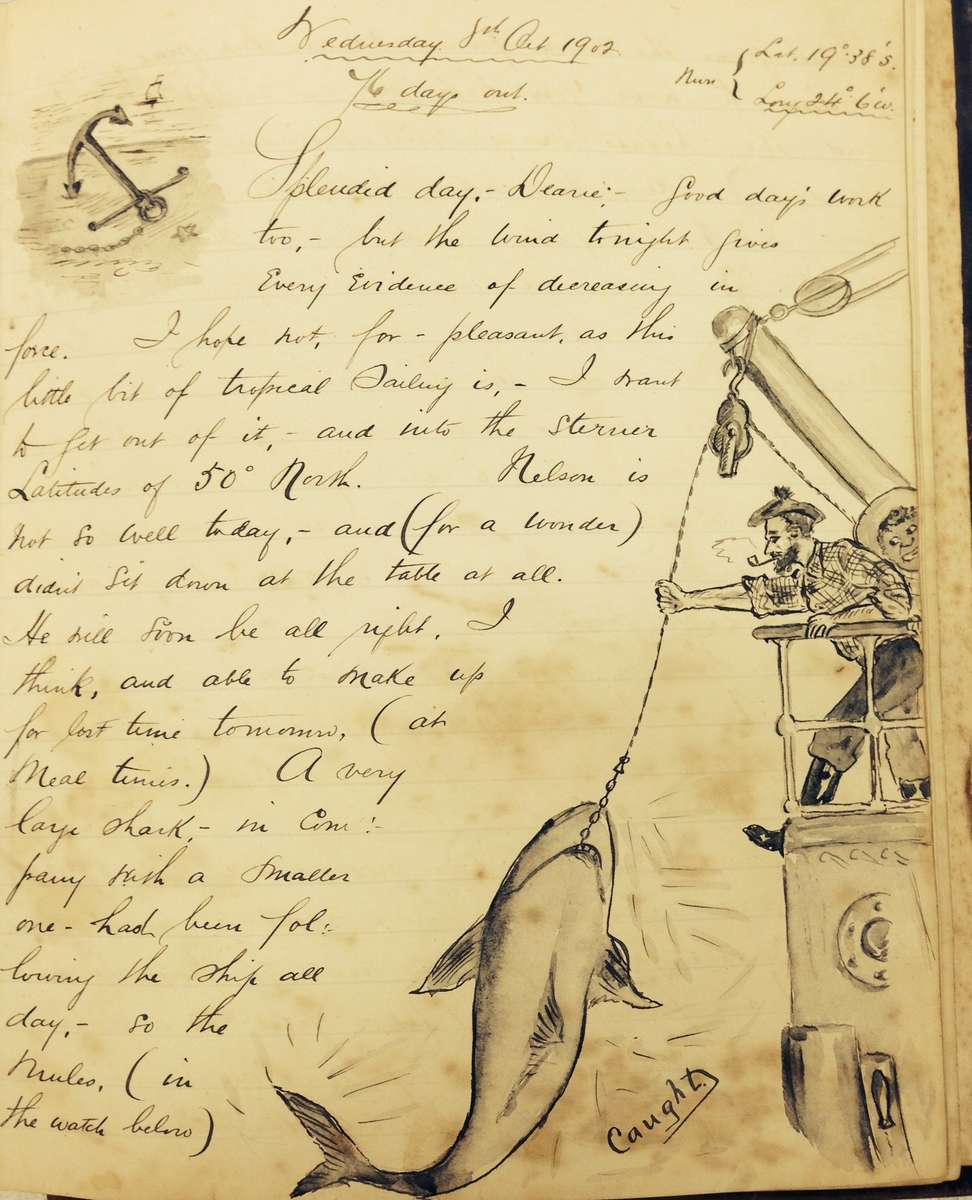 Wednesday 8th Oct 1902
76 days out.
Noon { Lat. 19°.38's.
Long 24° 6'w.
Splendid day,- Dearie,- Good day's work
too,- but the wind tonight gives
Every Evidence of decreasing in
force. I hope not, for - pleasant, as this
little bit of tropical Sailing is, - I want
to get out of it, - and into the sterner
Latitudes of 50° North. Nelson is
not so well today, - and (for a wonder)
didn't sit down at the table at all.
He will soon be all right, I
think, and able to make up
for lost time tomorrow, (at
Meal times.) A very
large shark,- in com:-
pany with a smaller
one - had been fol:-
lowing the ship all
day,- so the
Mules, (in
the watch below)
Caught.